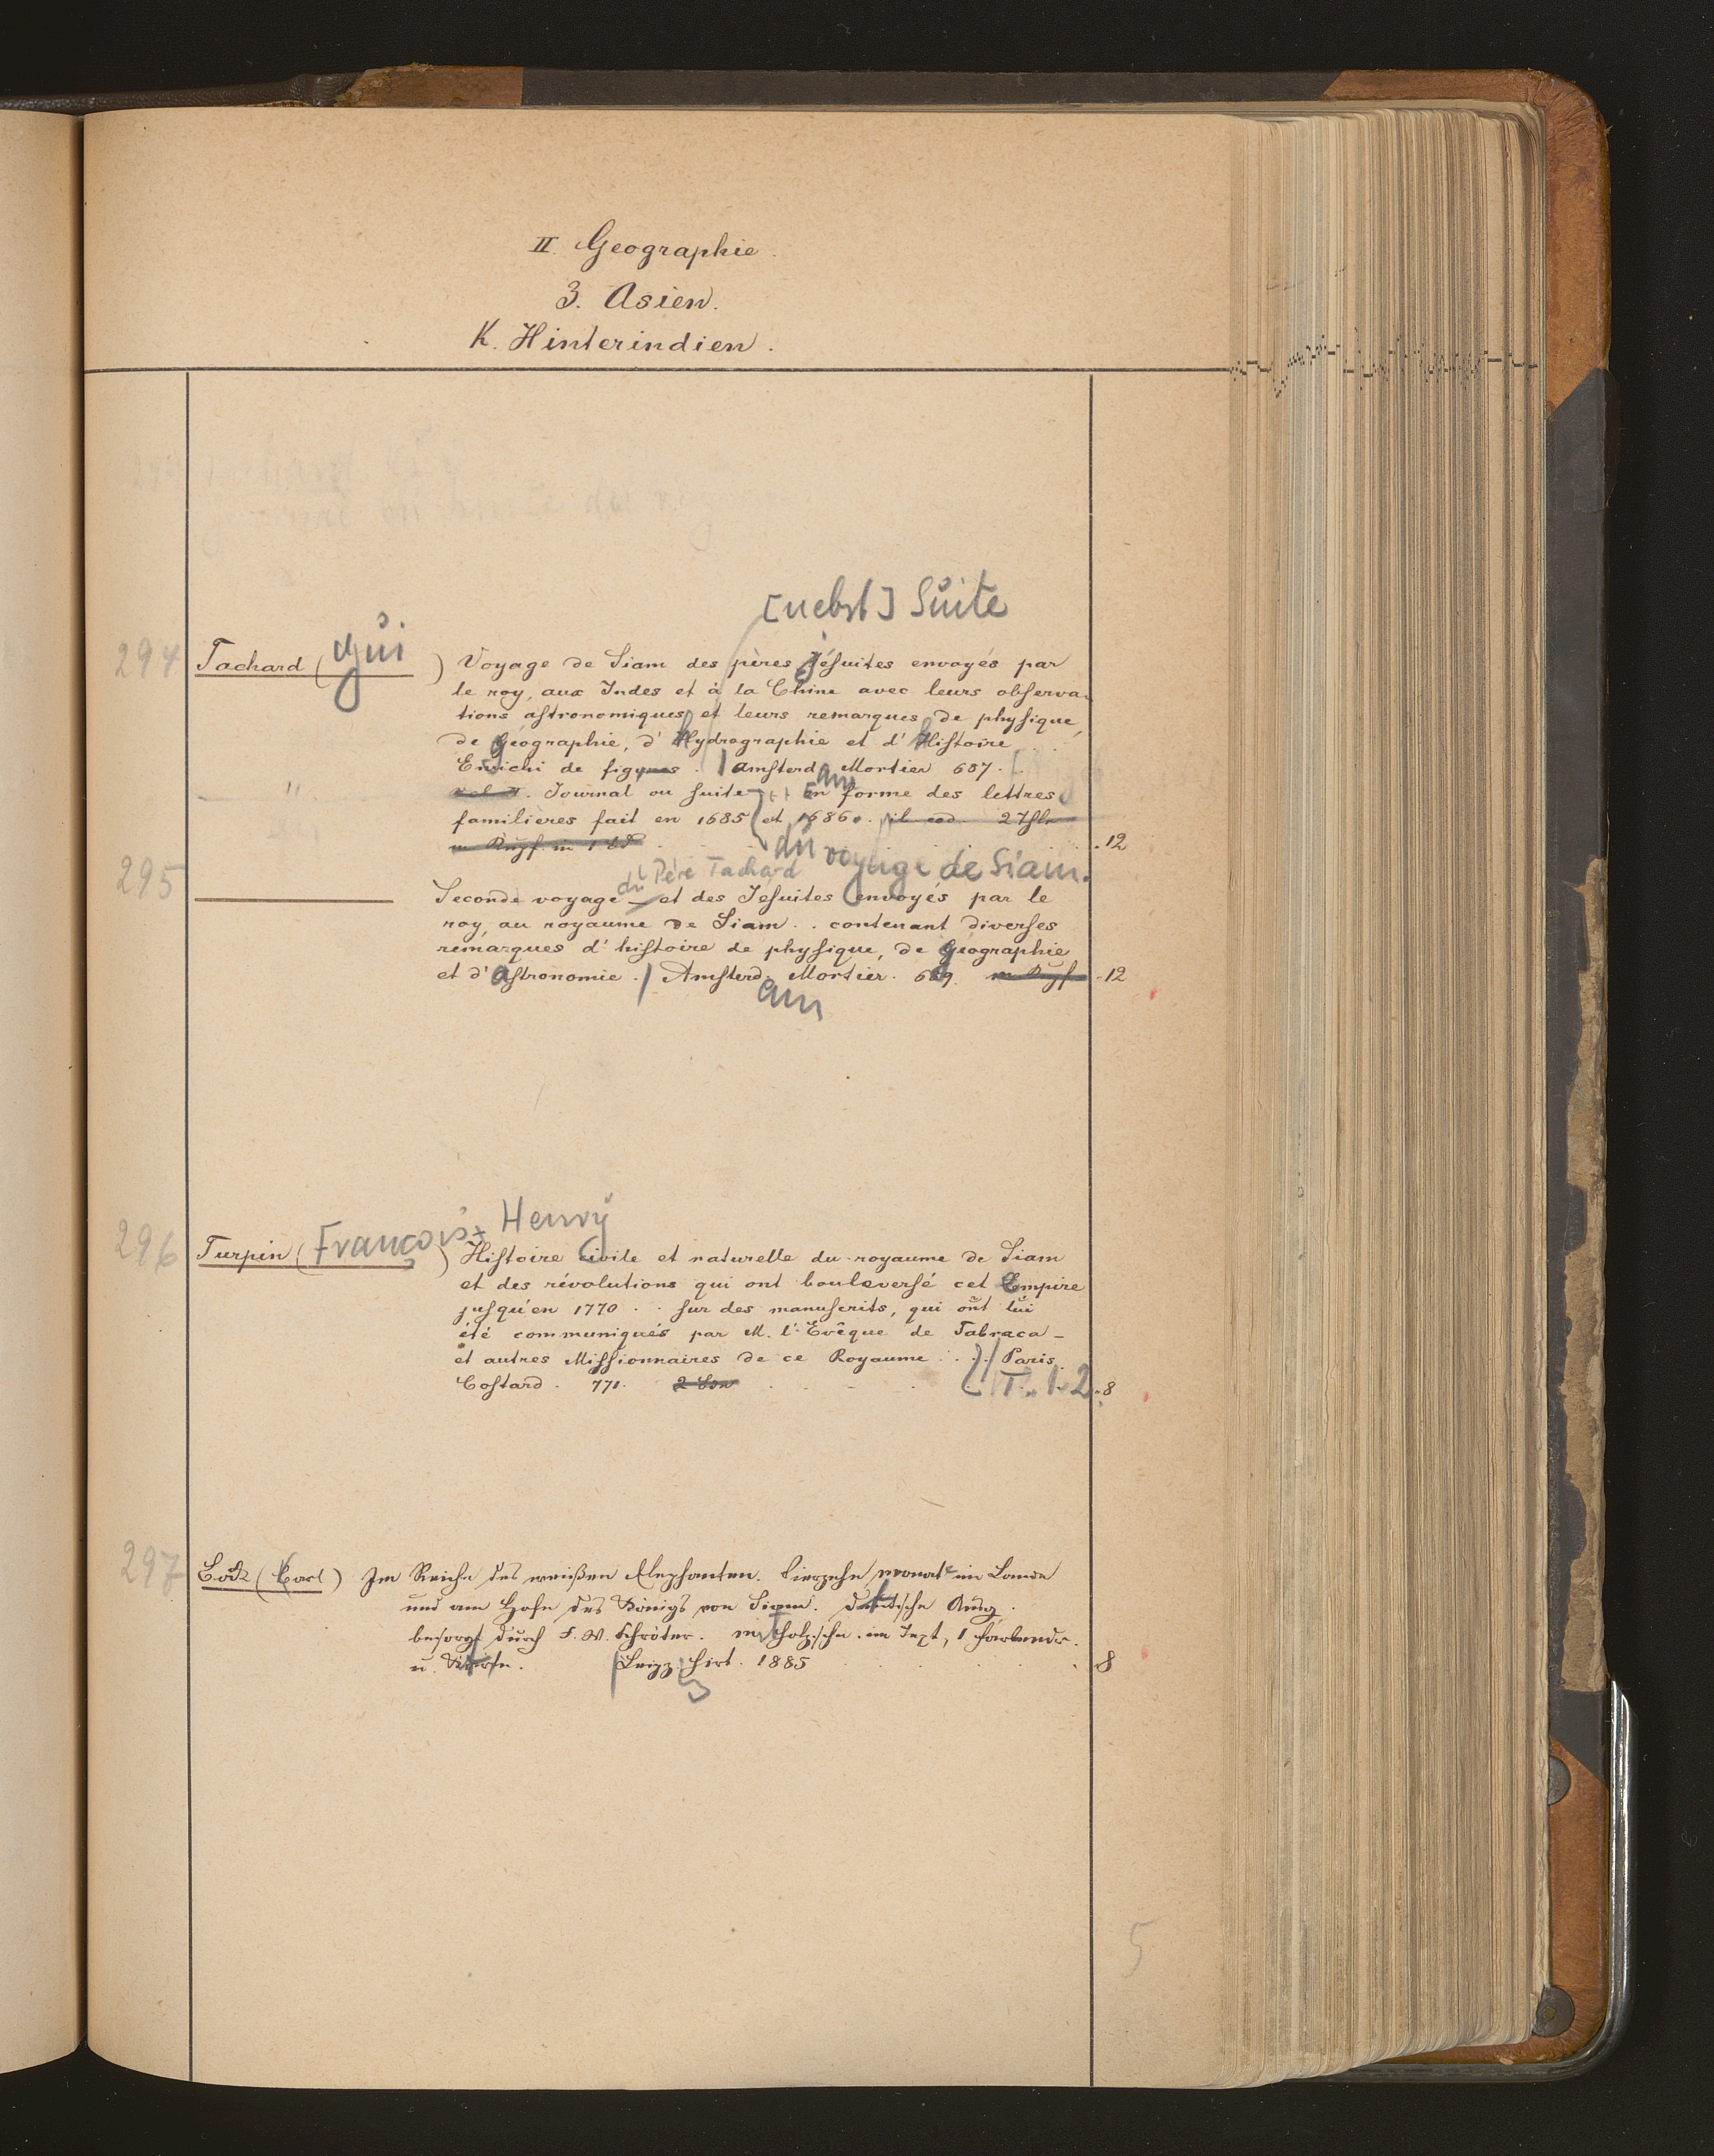 II. Geographie.
3. Asien.
K. Hinterindien.
[nebst] Suite
294 Tachard (Gui) Voyage de Siam des pères Jésuites envoyés par
le roy, aux Indes et à la Chine avec leurs observa-
tions astronomiques et leurs remarques de physique,
de géographie, d'hydrographie et d'histoire
Enrichi de figures. | Amsterdam Mortier 687.
" Journal ou suite en forme des lettres
familières fait en 1685 et 1686. 2 Thle
m Kupf. in 1 Bd 12
du voyage de Siam.
295 du Père Tachard
Seconde voyage et des Jesuites envoyés par le
roy, au royaume de Siam . . contenant diverses
remarques d'histoire de physique, de géographie
et d'astronomie. / Amsterdam Mortier. 689. m Kupf 12
296 Turpin (François Henry) Histoire civile et naturelle du royaume de Siam
et des révolutions qui ont bouleversé cet Empire
jusqu'en 1770 . . sur des manuscrits, qui ont lui
été communiqués par M. l'Evêque de Tabraca -
et autres Missionnaires de ce Royaume . . . | Paris.
Costard. 771. 2 Bde T. 1. 2 8
297 Bock (Carl) Im Reiche des weißen Elephanten. Vierzehn Monate im Lande
und am Hofe des Königs von Siam. Deutsche Ausg.
besorgt durch F. M. Schröter. mit Holzschn. im Text, 1 Farbendr.
u. Karte. | Leipz. Hirt. 1885 8
5